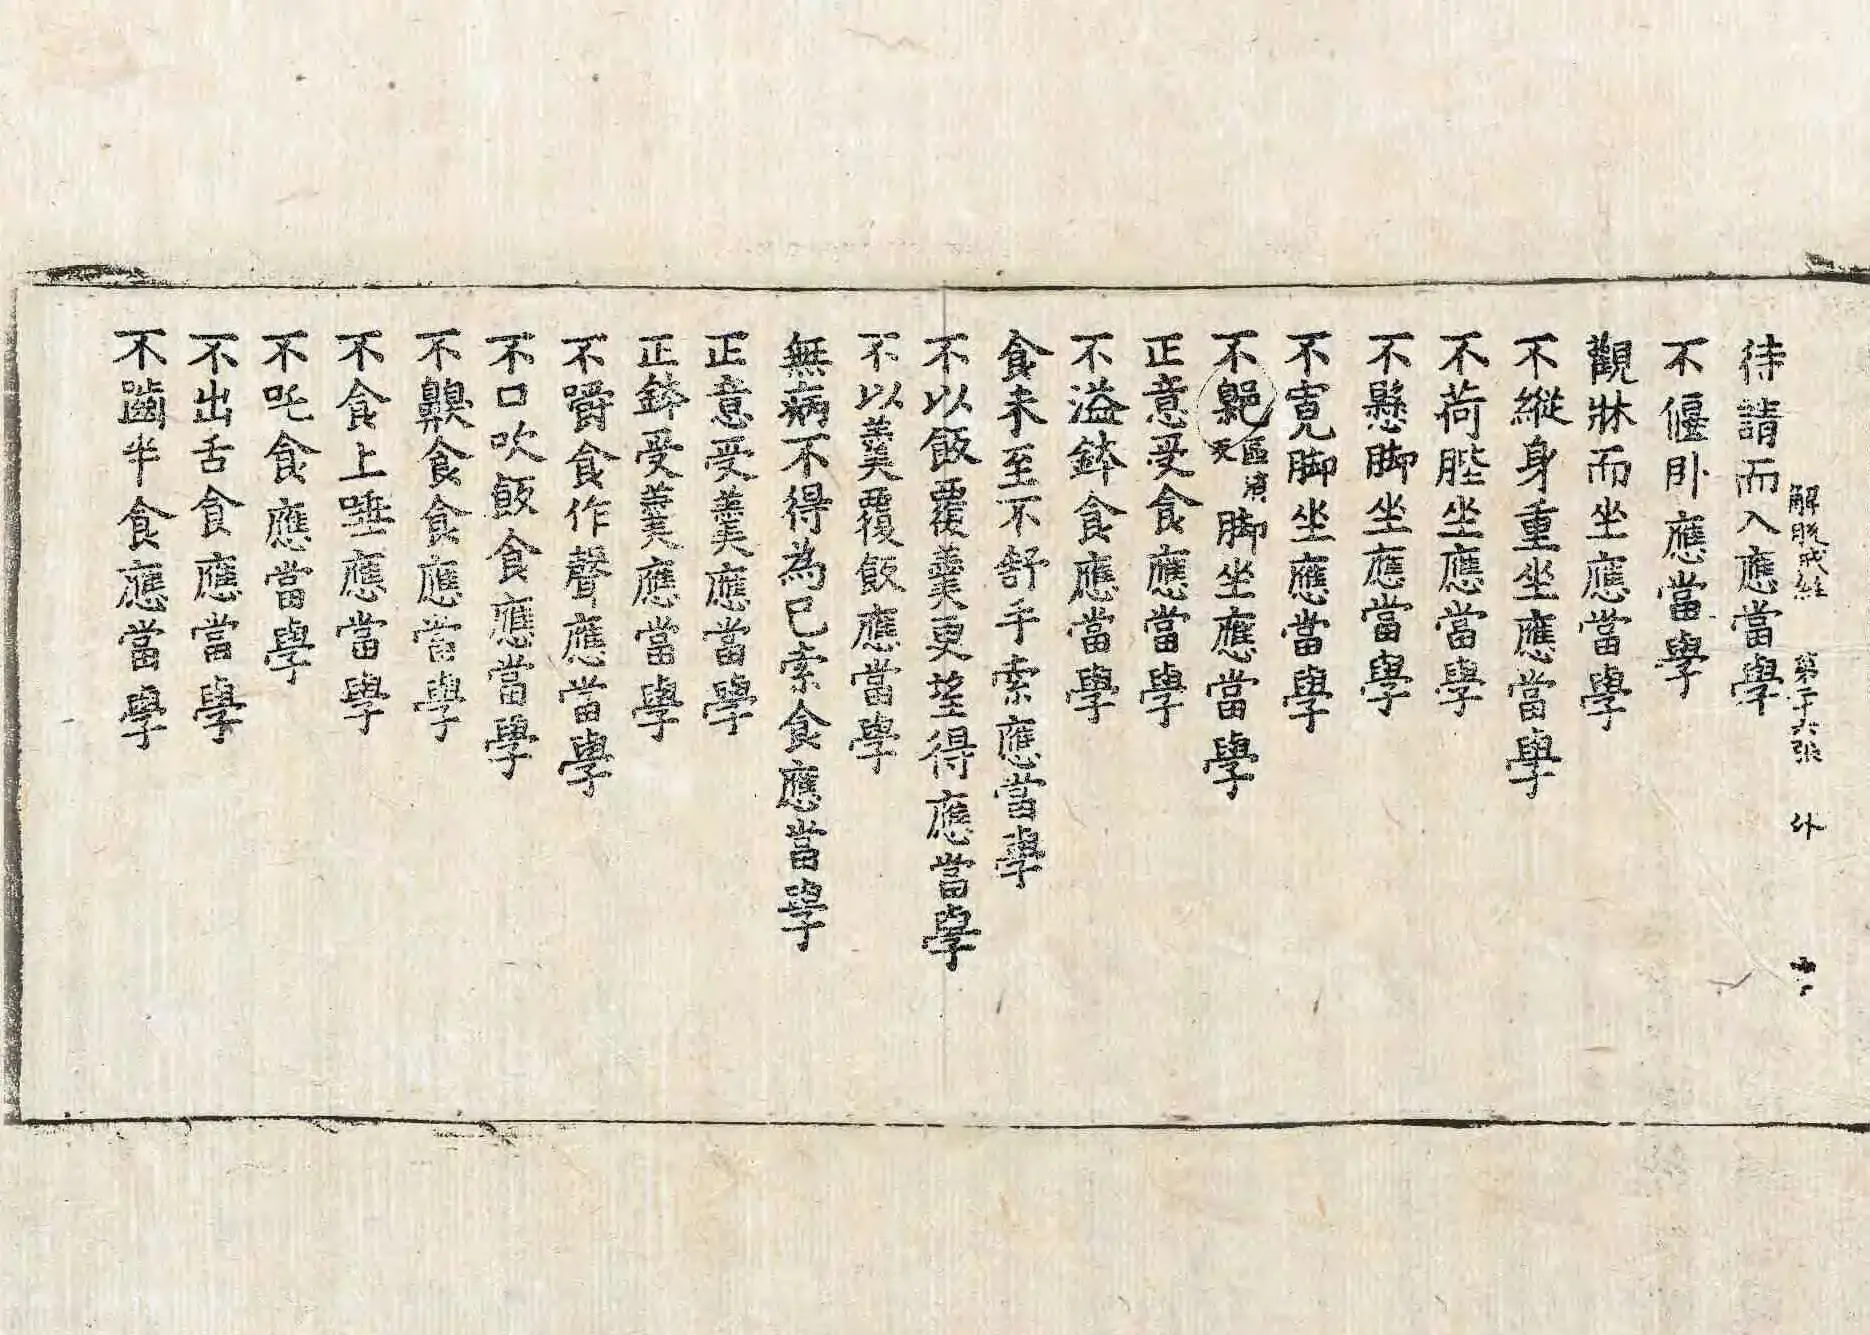 待請而入應當學
解脫戒經 第二十六張 外
不偃卧應當學
觀牀而坐應當學
不縱身重坐應當學
不荷䏶坐應當學
不懸脚坐應當學
不寬脚坐應當學
不 脚坐應當學
正意受食應當學
不溢鉢食應當學
食未至不舒手索應當學
不以飯覆羹更望得應當學
不以羹覆飯應當學
無病不得為已索食應當學
正意受羹應當學
正鉢受羹應當學
不嚼食作聲應當學
不口吹飯食應當學
不齅食食應當學
不食上唾應當學
不吒食應當學
不出舌食應當學
不齧半食應當學